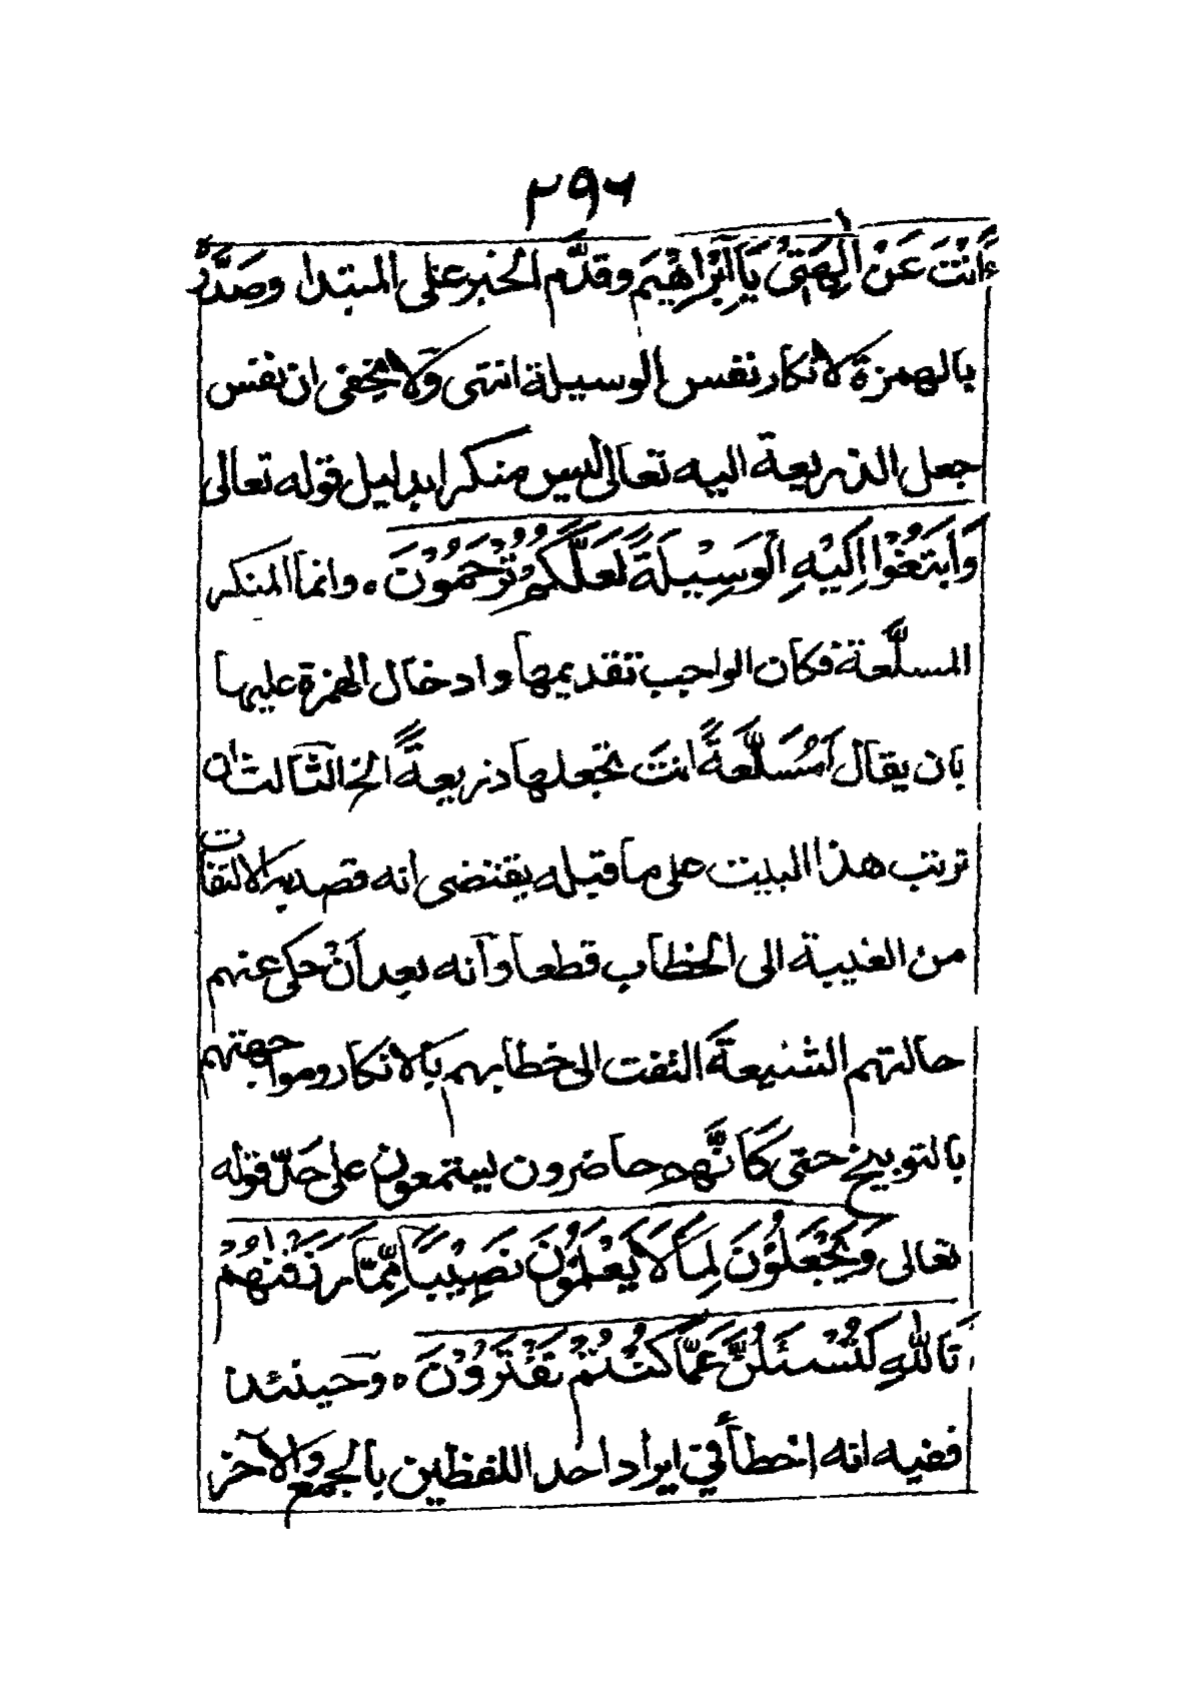 ٢٩٦
ءَاَنْتَ عَنْ اٰلِهَتِیْ یَآ اِبْرَاهِیْمَ وقدَّم الخبر على المبتدا وصَدَّرَهٗ
بالهمزة لانكار نفس الوسيلة انتهى وَلا يخفى ان نفس
جعل الذريعة اليه تعالى ليس منكرا بدليل قوله تعالى
وَابْتَغُوْا اِلَيْهِ الْوَسِيْلَةَ لَعَلَّكُمْ تُرْحَمُوْنَ ۰ وانما المنكر
المسلَّعة فكان الواجب تقديمها وادخال الهمزة عليها
بان يقال اَمُسَلَّعَةً انتَ تجعلها ذريعةً الخ الثالث ان
ترتب هذا البيت على ما قبله يقتضى انه قصد به الالتفات
من الغيبة الى الخطاب قطعا وانه بعد اَنْ حكى عنهم
حالتهم الشنيعةَ التفت الى خطابهم بالانكار ومواجهتهم
بالتوبيخ حتى كَاَنَّهم حاضرون يستمعون على حَدِّ قوله
تعالى وَيَجْعَلُوْنَ لِمَا لَا يَعْلَمُوْنَ نَصِيْبًا مِّمَّا رَزَقْنٰهُمْ
تَاللّٰهِ لَتُسْئَلُنَّ عَمَّا كُنْتُمْ تَفْتَرُوْنَ ۰ وحينئذ
ففيه انه اخطأ في ايراد احد اللفظين بالجمع والآخر